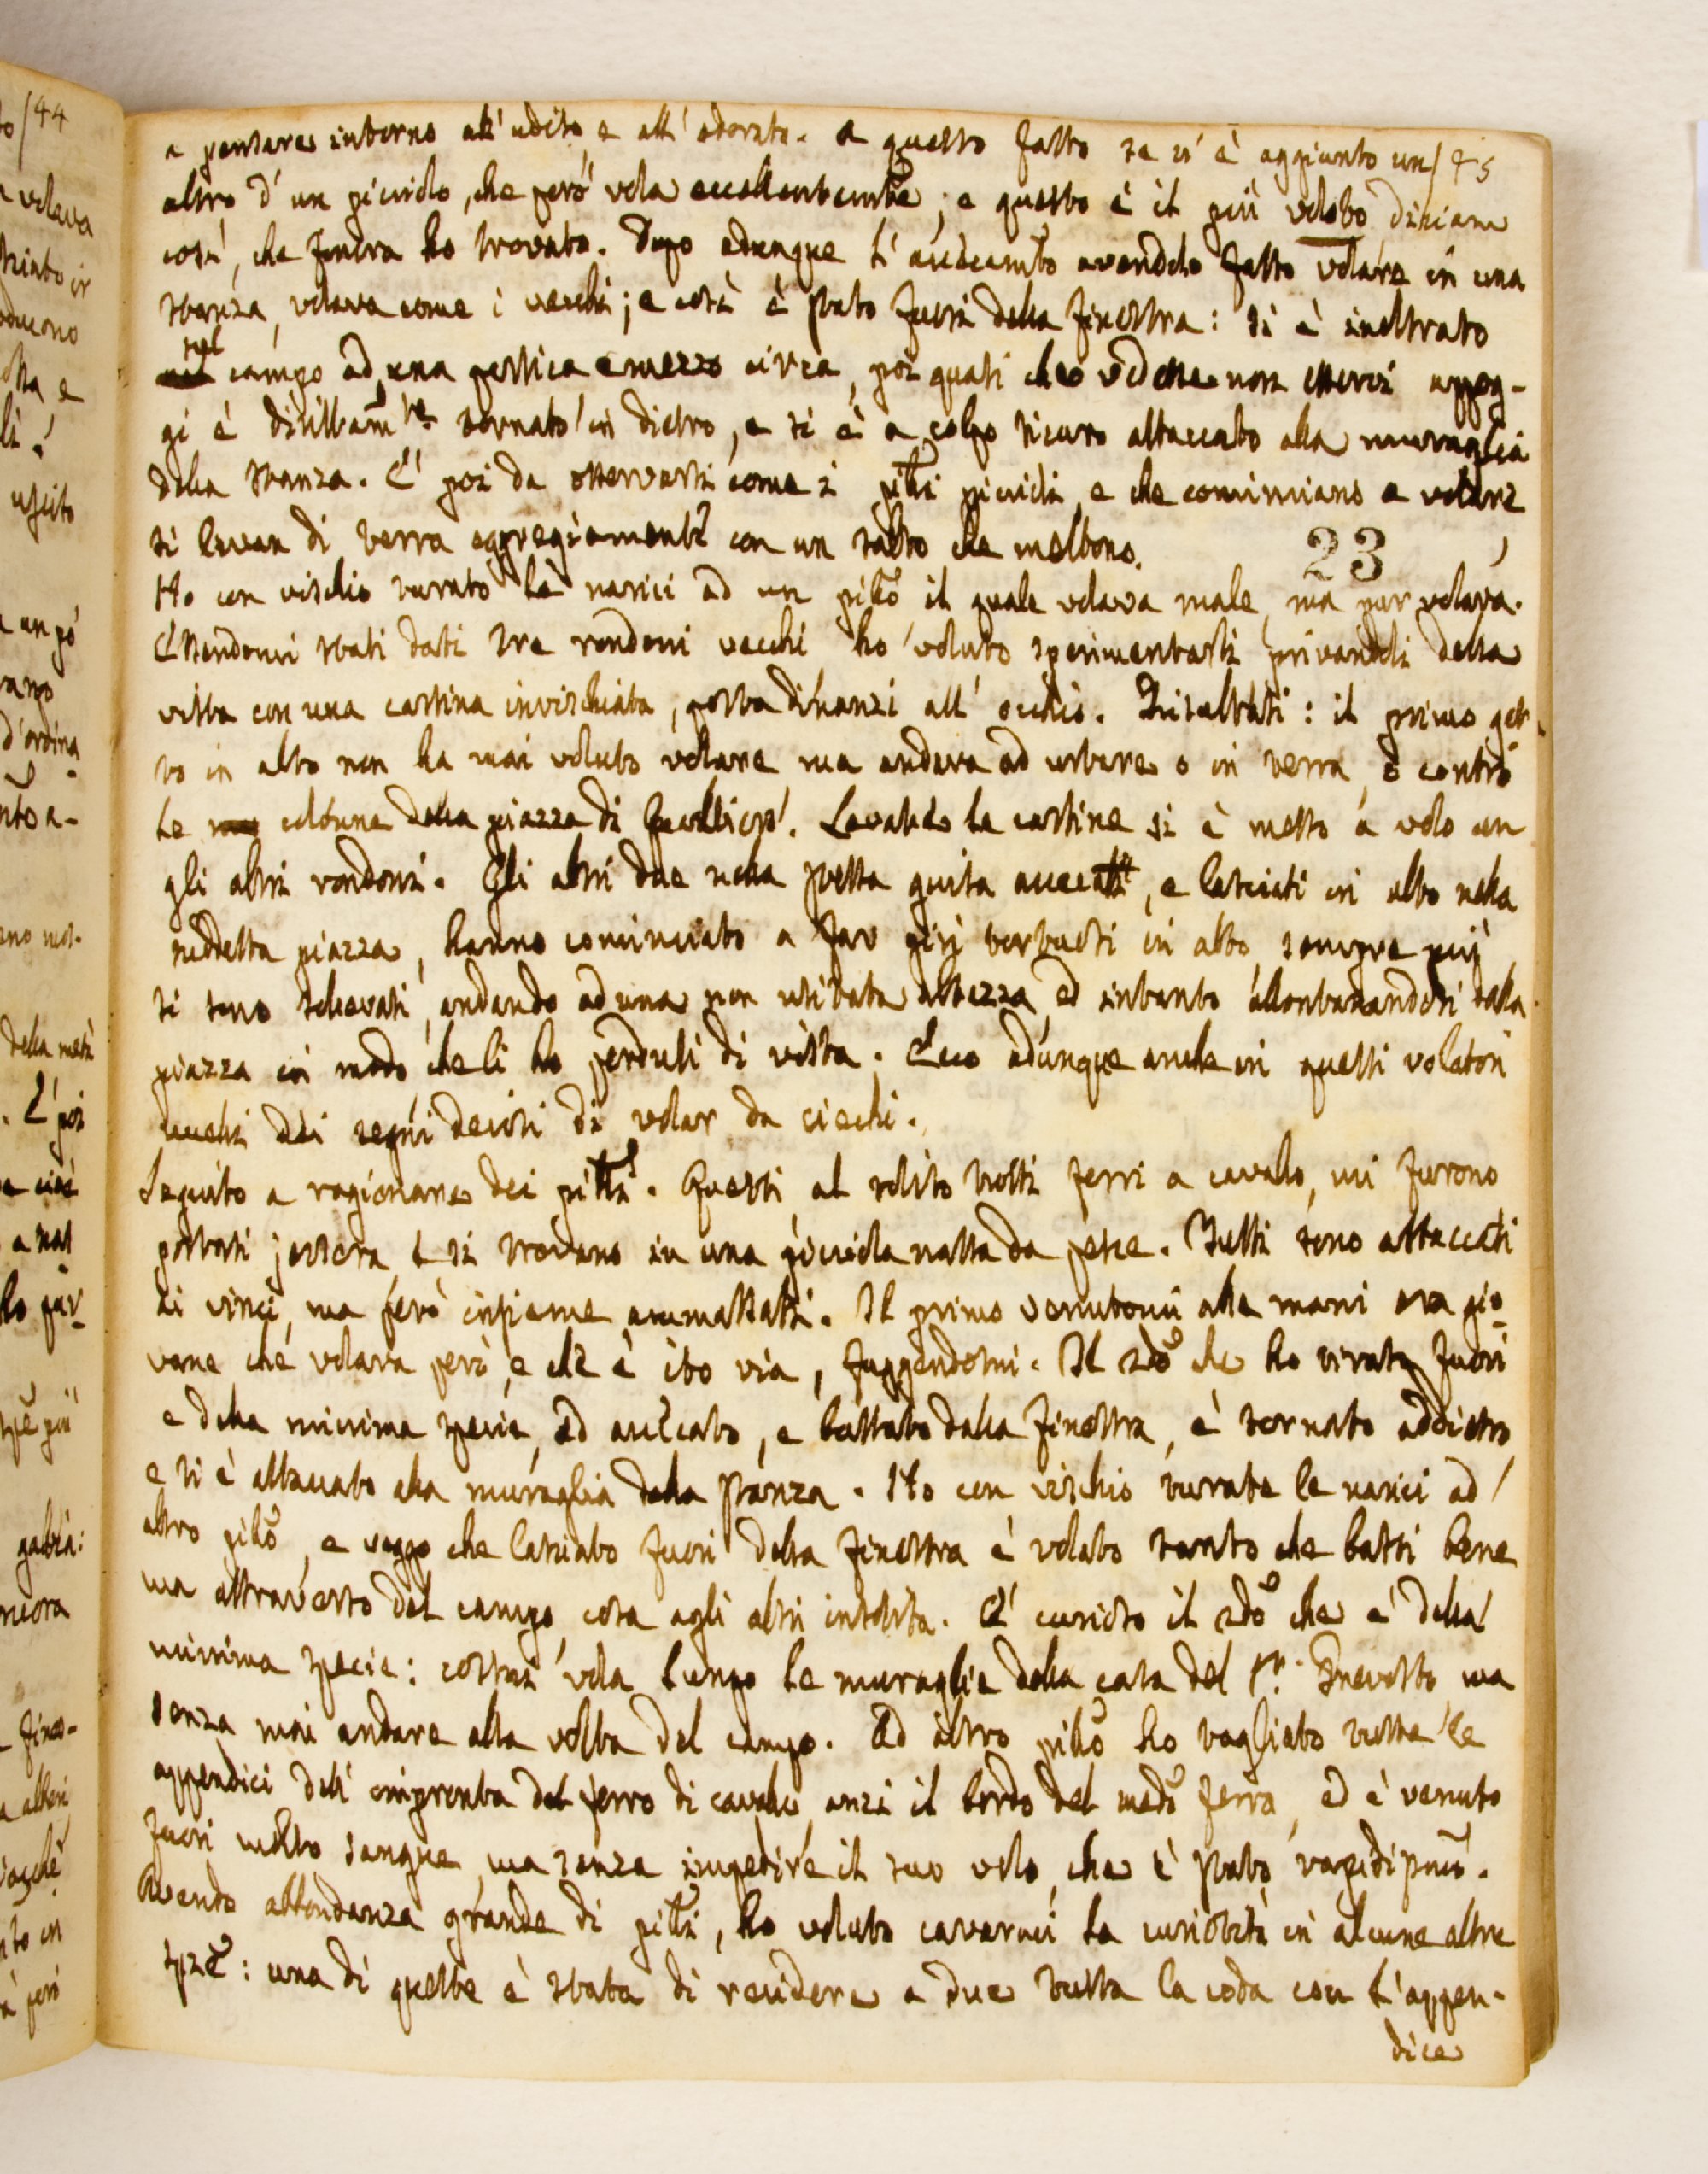 a pensare intorno all' udito e all' odorato. A questo fatto se n' è aggiunto un/45
altro d' un picciolo, che però vola eccellentemte; e questo è il più veloto diciam
così, che finora ho trovato. Dopo adunque l' acciecamto avendolo fatto volare in una
stanza, volava come i vecchi; e così è stato fuori della finestra: si è inoltrato
nel campo ad una pertica e mezzo circa, poi quasi che vedesse non esservi appog-
gi è difilatamte tornato in dietro, e si è a colpo sicuro attaccato alla muraglia
della stanza. E' poi da osservarsi come i pilli piccioli, e che cominciano a volare
si levan di terra egregiamente con un salto che mettono.
23
Ho con vischio turato le narici ad un pillo il quale volava male, ma pur volava.
Essendomi stati dati tre rondoni vecchi ho voluto sperimentarli privandoli della
vista con una cartina invischiata, posta dinanzi all' occhio. Risultati: il primo get-
to in alto non ha mai voluto volare ma andava ad urtare o in terra, o contro
le colonne della piazza di . Levate le cartine si è messo a volo con
gli altri rondoni. Gli altri due nella stessa guisa acceccati, e lasciati in alto nella
suddetta piazza, hanno cominciato a far giri tortuosi in alto, sempre più
si sono sollevati, andando ad una non usitata altezza, ed intanto allontanandosi dalla
piazza in modo che li ho perduti di vista. Ecco adunque anche in questi volatori
uccelli dei segni decisi di volar da ciechi.
Seguito a ragionare dei pilli. Questi al solito tutti ferri a cavallo, mi furono
portati jersera e si trovano in una picciola nassa da pesce. Tutti sono attaccati
ai vinci, ma però insieme ammassati. Il primo venutomi alle mani era gio-
vane che volava però, e che è ito via, fuggendomi. Il 2do che ho tirato fuori
e della minima specie, ed accecato, e buttato dalla finestra, è tornato addietro
e si è attaccato alla muraglia della stanza. Ho con vischio turate le narici ad
altro pillo, e veggo che lasciato fuori della finestra è volato tanto che basti bene
ma attraverso del campo, cosa agli altri insolita. E' curioso il 2do che è della
minima specie: costui vola lungo le muraglie della casa del Sr. Prevosto ma
senza mai andare alla volta del campo. Ad altro pillo ho tagliato tutte le
appendici dell' impronta del ferro di cavallo, anzi il bordo del medo ferro, ed è venuto
fuori molto sangue, ma senza impedire il suo volo, che è stato rapidissimo.
Avendo abbondanza grande di pilli, ho voluto cavarmi la curiosità in alcune altre
spze: una di queste è stata di recidere a due tutta la coda con l' appen-
dice